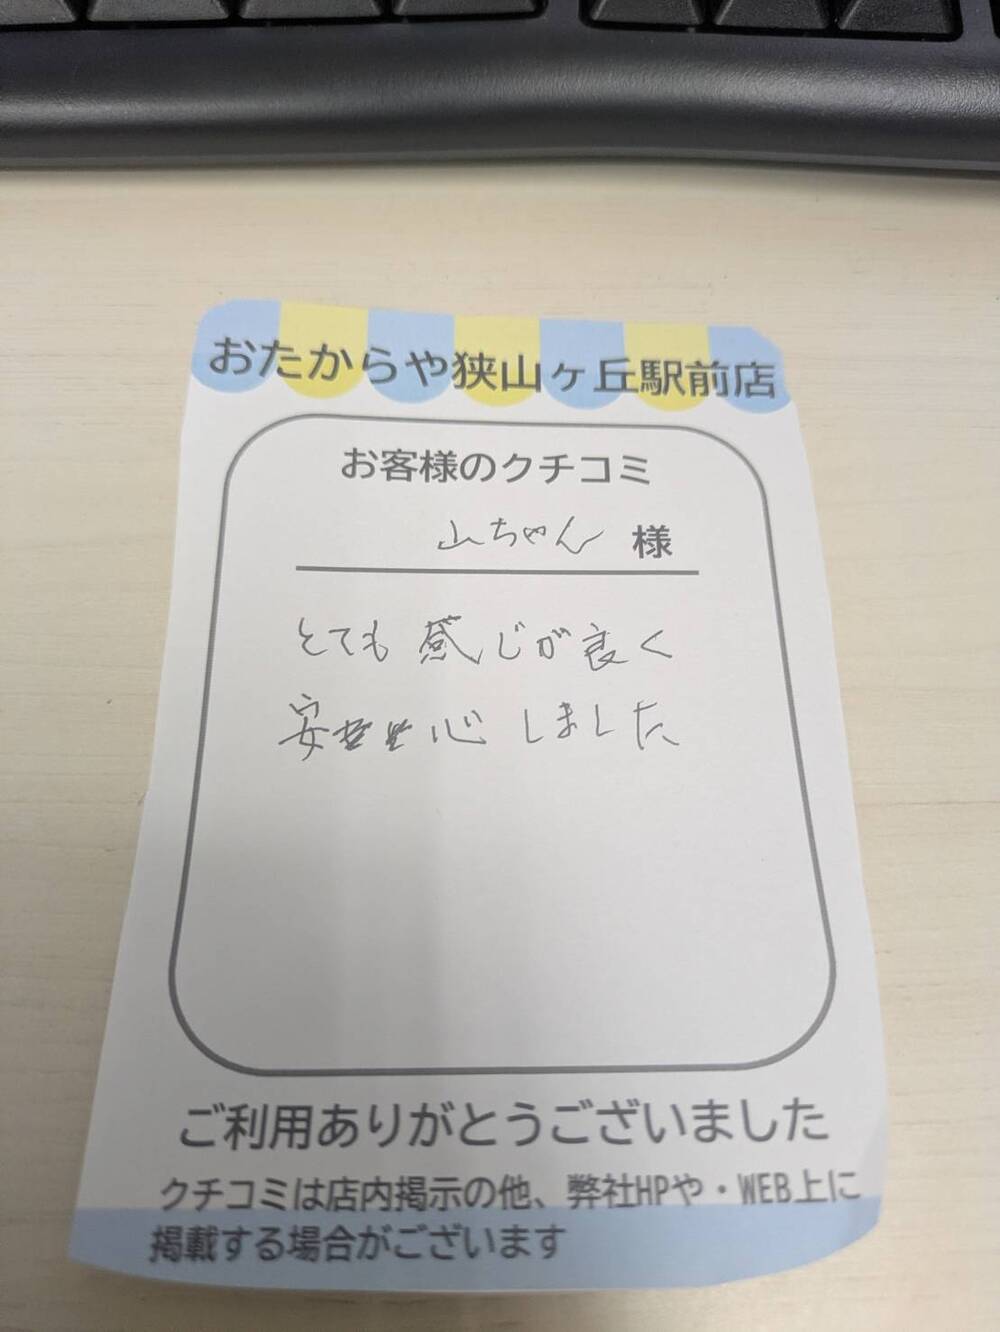 おたからや狭山ヶ丘駅前店
お客様のクチコミ
山ちゃん 様
とても 感じが良く
安心 しました
ご利用ありがとうございました
クチコミは店内掲示の他、弊社HPや・WEB上に
掲載する場合がございます